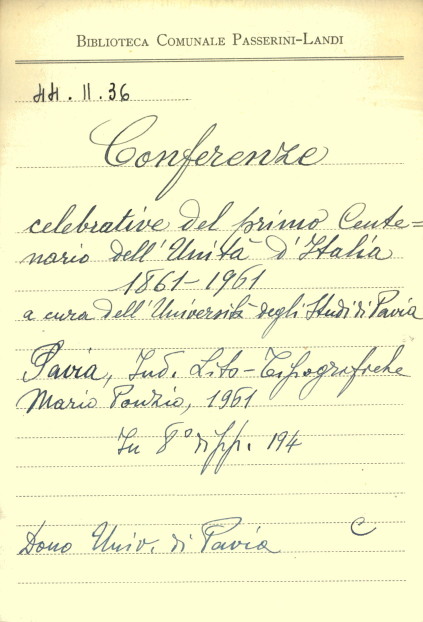 BIBLIOTECA COMUNALE PASSERINI-LANDI
44.II.36
Conferenze
celebrative del primo Cente=
nario dell'Unità d'Italia
1861-1961
a cura dell'Università degli Studi di Pavia
Pavia, Ind. Lito-Tipografiche
Mario Ponzio, 1961
In 8° di pp. 194
C
Dono Univ. di Pavia